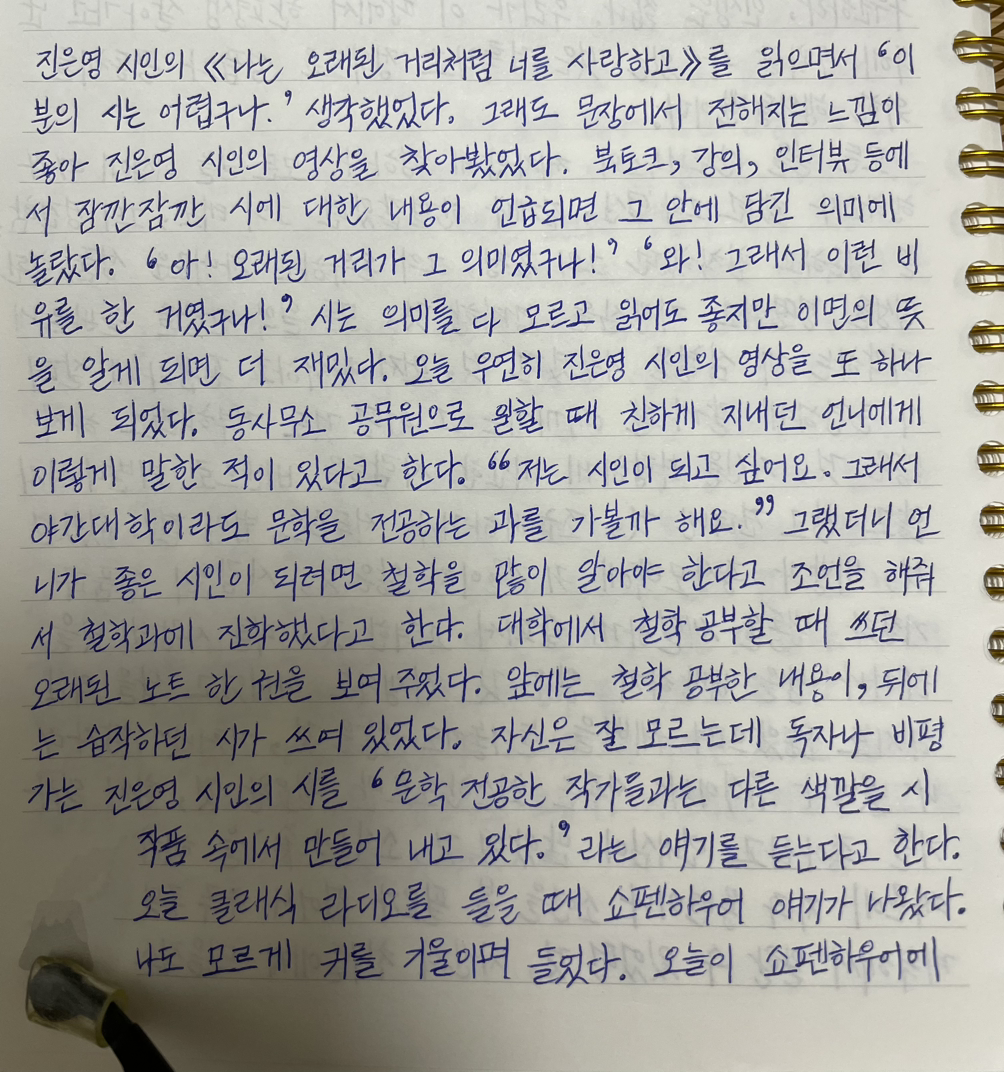 진은영 시인의 《나는 오래된 거리처럼 너를 사랑하고》를 읽으면서 ‘이
분의 시는 어렵구나.’ 생각했었다. 그래도 문장에서 전해지는 느낌이
좋아 진은영 시인의 영상을 찾아봤었다. 북토크, 강의, 인터뷰 등에
서 잠깐잠깐 시에 대한 내용이 언급되면 그 안에 담긴 의미에
놀랐다. ‘아! 오래된 거리가 그 의미였구나!’ ‘와! 그래서 이런 비
유를 한 거였구나!’ 시는 의미를 다 모르고 읽어도 좋지만 이면의 뜻
을 알게 되면 더 재밌다. 오늘 우연히 진은영 시인의 영상을 또 하나
보게 되었다. 동사무소 공무원으로 일할 때 친하게 지내던 언니에게
이렇게 말한 적이 있다고 한다. “저는 시인이 되고 싶어요. 그래서
야간대학이라도 문학을 전공하는 과를 가볼까 해요.” 그랬더니 언
니가 좋은 시인이 되려면 철학을 많이 알아야 한다고 조언을 해줘
서 철학과에 진학했다고 한다. 대학에서 철학 공부할 때 쓰던
오래된 노트 한 권을 보여 주었다. 앞에는 철학 공부한 내용이, 뒤에
는 습작하던 시가 쓰여 있었다. 자신은 잘 모르는데 독자나 비평
가는 진은영 시인의 시를 ‘문학 전공한 작가들과는 다른 색깔을 시
작품 속에서 만들어 내고 있다.’ 라는 얘기를 듣는다고 한다.
오늘 클래식 라디오를 들을 때 쇼펜하우어 얘기가 나왔다.
나도 모르게 귀를 기울이며 들었다. 오늘이 쇼펜하우어에